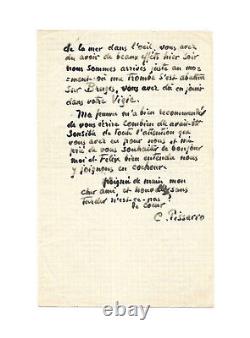 de la mer dans l'oeil, vous avez
du avoir de beaux effets hier soir
nous sommes arrivés juste au mo-
-ment où une trombe s'est abattue
sur Bruges, vous avez du en jouir
dans votre
Ma femme m'a bien recommandé
de vous écrire combien elle avait été
sensible de toute l'attention que
vous avez eu pour nous et me
prie de vous souhaiter le bonjour
moi et Félix bien entendu nous
y joignons en coeur
Poignée de main mon
cher ami, et nouvelles sans
tarder n'est-ce-pas ?
De coeur
C. Pissarro
ebay